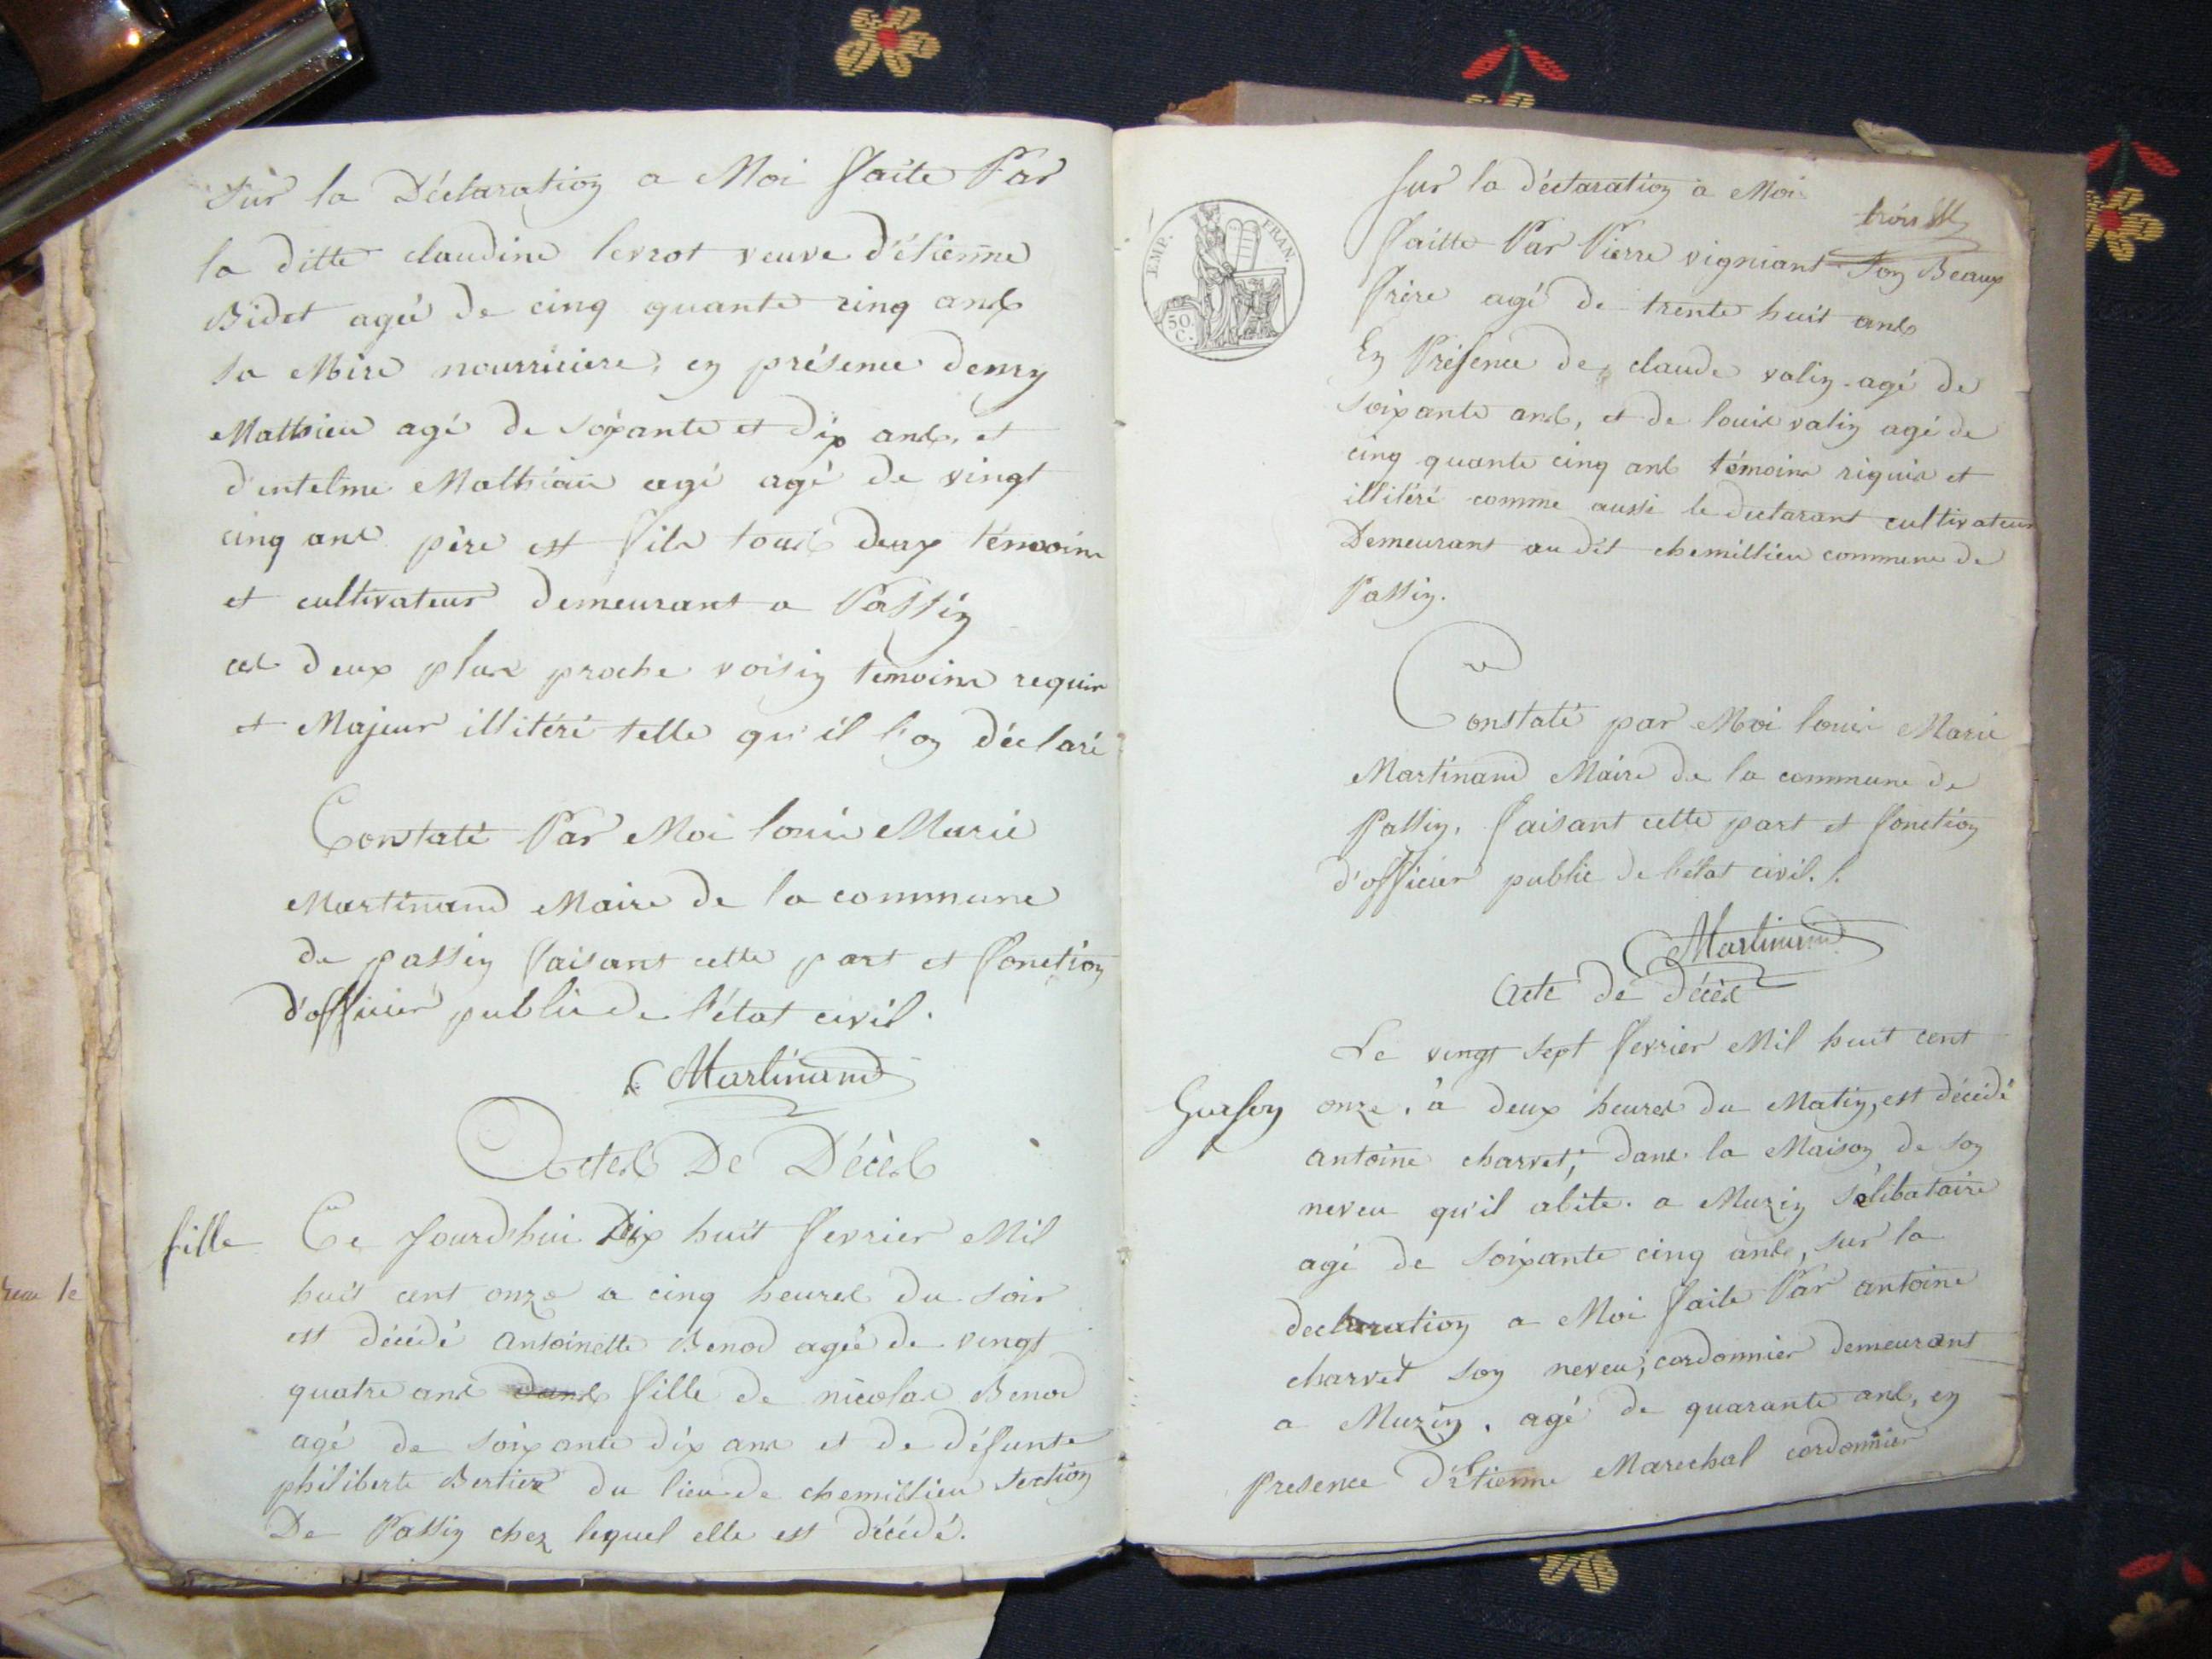 Sur la Déclaration a Moi faite Par
la ditte claudine levrot veuve d'étienne
Bidot agée de cinq quante cinq ans
sa Mere nourriciere, en présence denry
Mathieu agé de soixante et dix ans, et
d'entelme Mathieu agé agé de vingt
cinq ans père est fils tous deux témoins
et cultivateur demeurant a Passin
ces deux plus proche voisin témoins requis
et Majeur illitéré telle qu'il l'on déclaré
Constaté Par Moi louis Marie
Martinand Maire de la commune
de passin faisant cette part et fonction
d'officier public de l'état civil.
Martinand
Actes De Décès
fille
Ce Jourd'hui Dix huit fevrier Mil
huit cent onze a cinq heures du soir
est décédé antoinette Benod agée de vingt
quatre ans dans fille de nicolas Benod
agé de soixante dix ans et de défunte
philiberte Bertier du lieu de chemillieu section
De Passin chez lequel elle est décédé.
EMP. FRAN.
50. C.
trois
sur la déclaration à Moi
faitte Par Pierre vigniant Son Beaux
frère agé de trente huit ans
En Présence de claude valin agé de
soixante ans, et de louis valin agé de
cinq quante cinq ans témoins riquis et
illitéré comme aussi le declarant cultivateur
Demeurant au dit chemillieu commune de
Passin.
Constaté par Moi louis Marie
Martinand Maire de la commune de
Passin, faisant cette part et fonction
d'officier public de l'état civil.
Martinand
Acte de décès
Le vingt sept fevrier Mil huit cent
Garson
onze, à deux heures du Matin, est décédé
antoine charvet, dans la Maison de son
neveu qu'il abite. a Muzin sélibataire
agé de soixante cinq ans, sur la
declaration a Moi faite Par antoine
charvet son neveu, cordonnier demeurant
a Muzin, agé de quarante ans, en
presence d'Etienne Marechal cordonnier